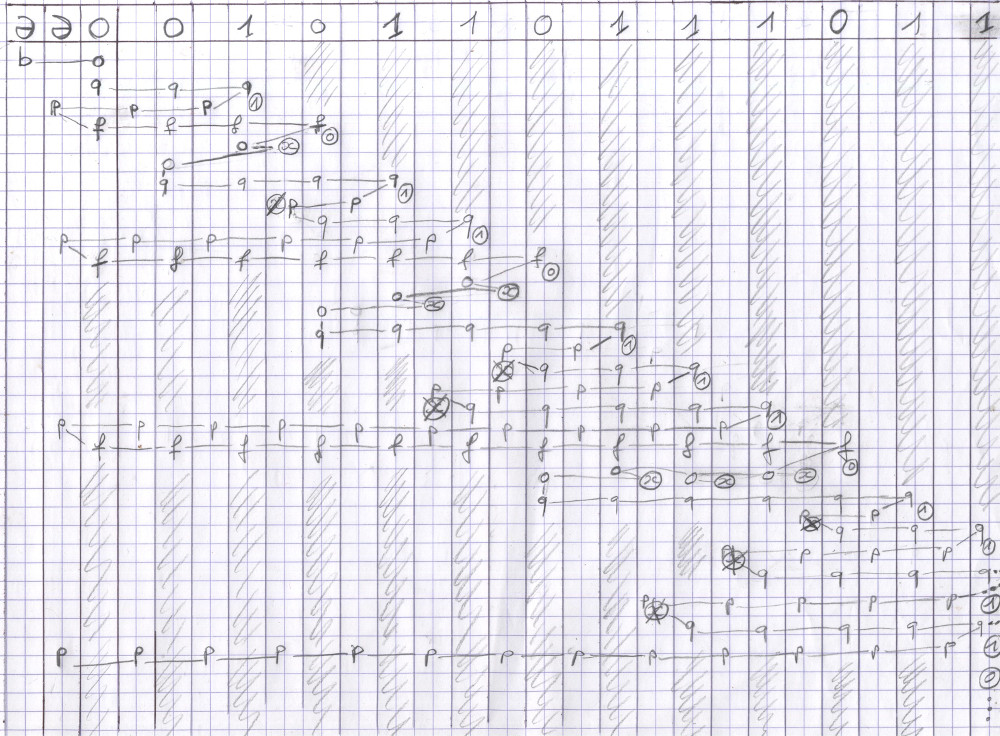 ə ə 0 0 1 0 1 1 0 1 1 1 0 1 1
b o
q q q
p p p ①
f f f f ⓪
o ⓧ
o
q q q q ①
ⓧ p p
q q q ①
p p p p p p
f f f f f f f ⓪
o ⓧ
o ⓧ
o
q q q q q ①
p p
ⓧ q q q ①
p p p p
ⓧ q q q q q ①
p p p p p p p p p p
f f f f f f f f f f f ⓪
o o ⓧ o ⓧ o ⓧ
q q q q q q ①
p p
ⓧ q q q ①
p p p p
ⓧ q q q q
p p p p p ①
ⓧ q q q q q
p p p p p p p p p p p p p ①
⓪